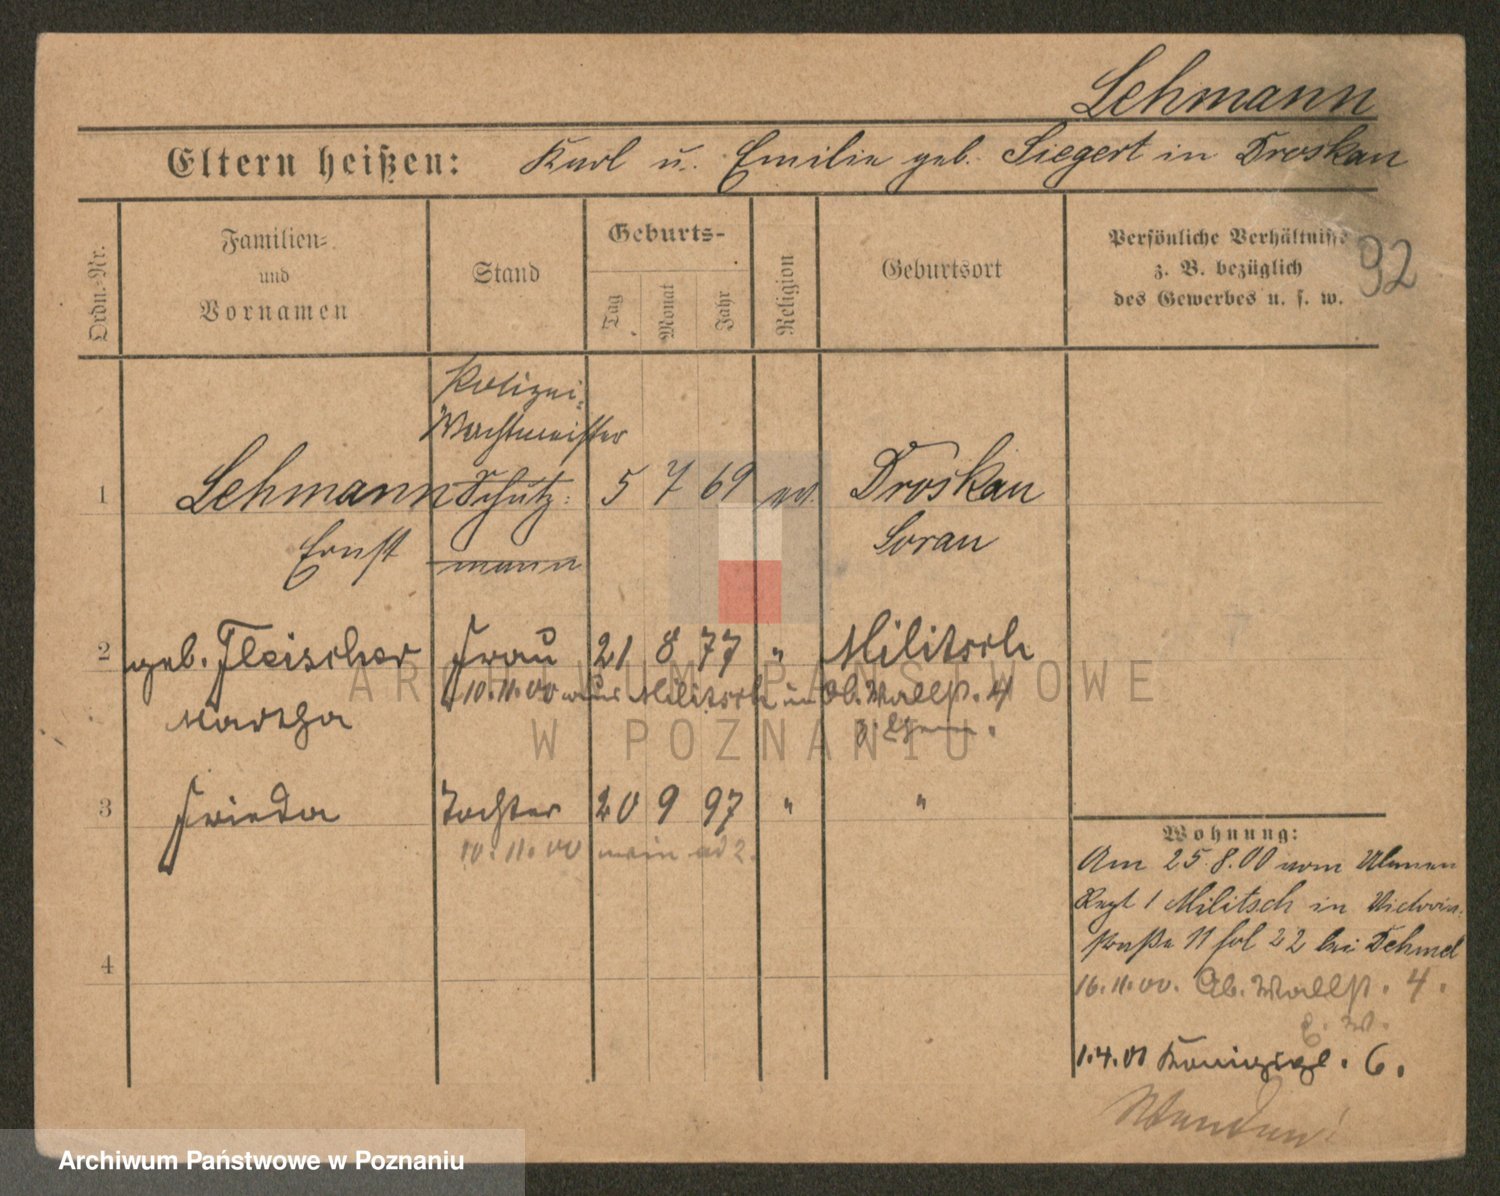 Lehmann
Eltern heißen: Karl u. Emilie geb. Siegert in Droskau
Ordn.-Nr.
Familien-
und
Vornamen
Stand
Geburts-
Tag
Monat
Jahr
Religion
Geburtsort
Persönliche Verhältnisse
z. B. bezüglich
des Gewerbes u. s. w.
92
Polizei-
Wachtmeister
1 Lehmann Schutz- 5 7 69 ev. Droskau
Ernst mann Sorau
2 geb. Fleischer Frau 21 8 77 " Militsch
10.11.00 aus Militsch in Ob. Wallst. 4
Martha
z. Ehem.
3 Frieda Tochter 20 9 97 " "
10.11.00 ad 2.
4
Wohnung:
Am 25.8.00 vom Ulanen
Regt 1 Militsch in Victoria-
straße 11 bei Dehmel
16.11.00. Ob. Wallst. 4.
E. W.
1.4.01 Königspl. 6.
Wenden!
ARCHIWUM PAŃSTWOWE
W POZNANIU
Archiwum Państwowe w Poznaniu